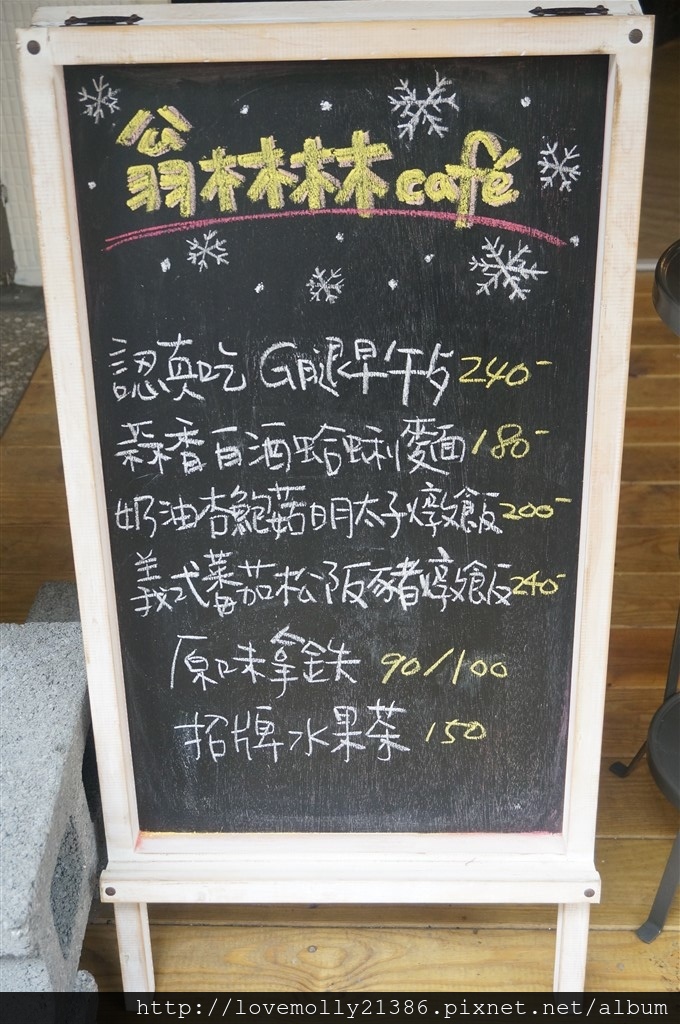 翁林林林 café
認真吃 G腿早午点 240-
蒜香白酒蛤蜊麵 180-
奶油杏鮑菇明太子燉飯 200-
義式蕃茄松阪豬燉飯 240-
原味拿鉄 90/100
招牌水果茶 150
http://lovemolly21386.pixnet.net/album